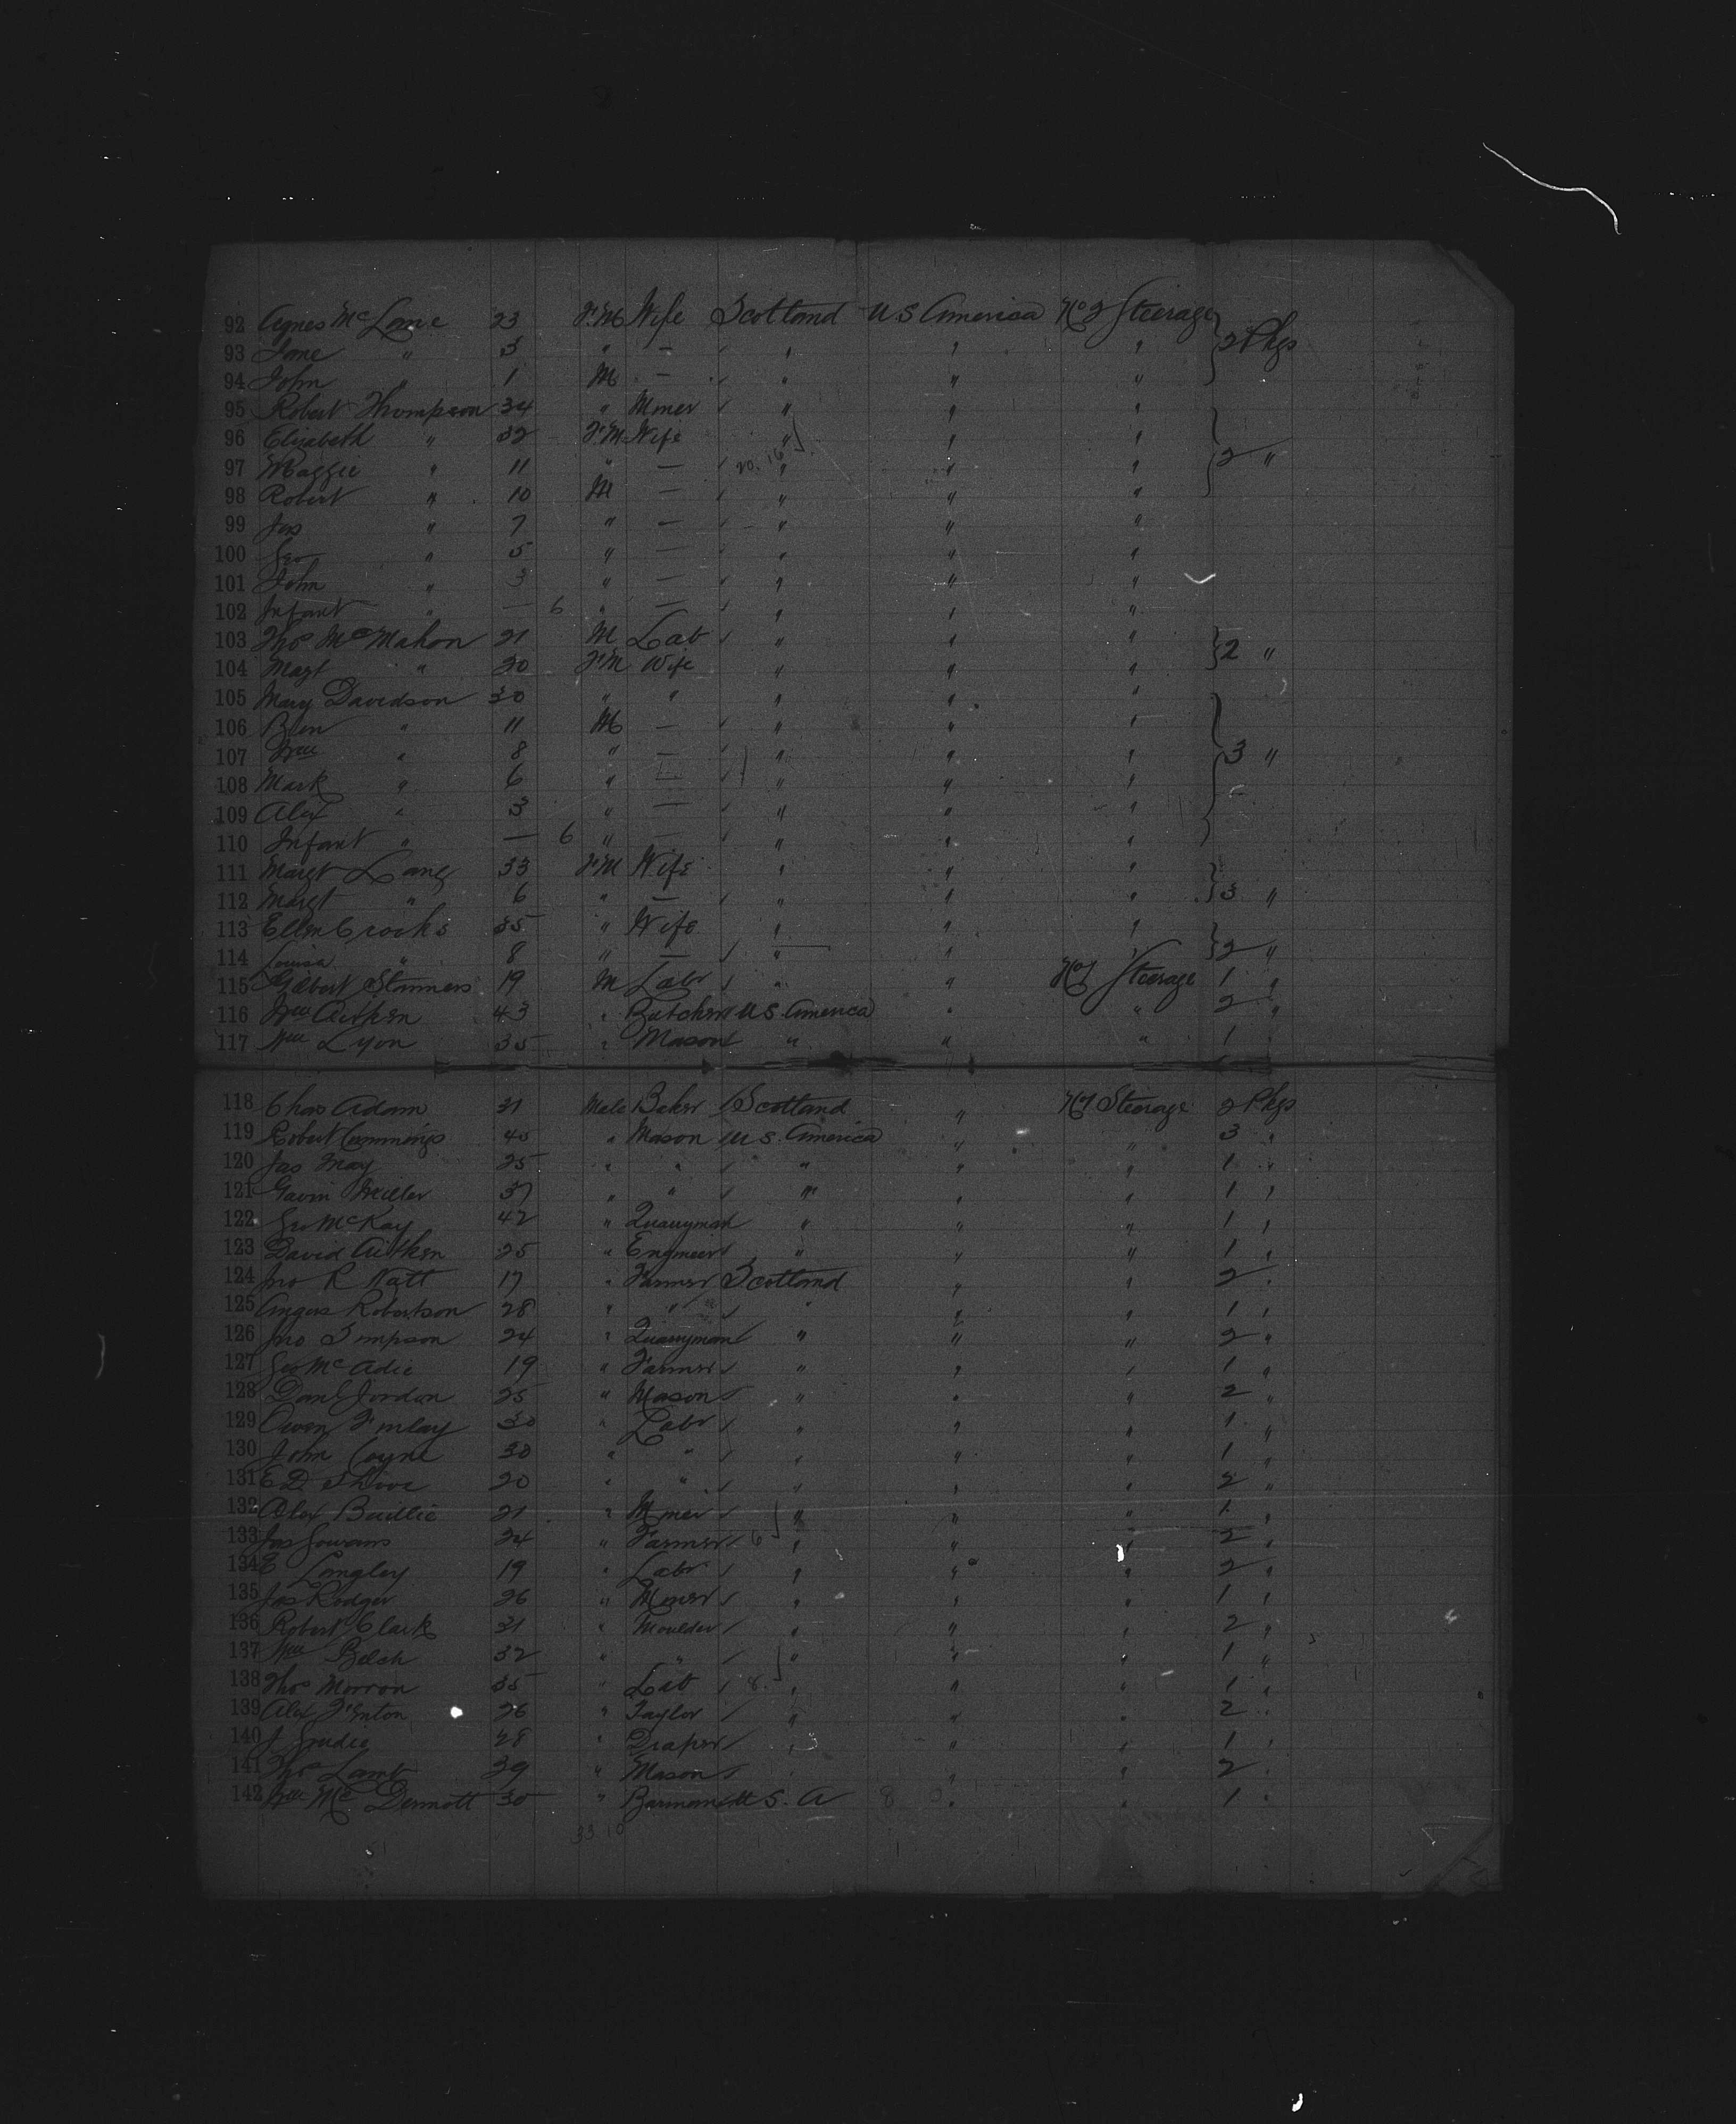 92 Agnes McLane 23 F.M Wife Scotland U S America No 2 Steerage } 2 Pkgs
93 Jane " 3 " — " " "
94 John " 1 M — " " "
95 Robert Thompson 34 " Miner " " "
96 Elizabeth " 32 F.M Wife " " " } 2 "
97 Maggie " 11 " — " " "
98 Robert " 10 M — " " "
99 Jas " 7 " — " " "
100 Geo " 5 " — " " "
101 John " 3 " — " " "
102 Infant " — 6 " — " " "
103 Thos McMahon 21 M Lab " " " } 2 "
104 Magt " 20 F.M Wife " " "
105 Mary Davidson 30 " " " " "
106 Ben " 11 M — " " "
107 Wm " 8 " — " " " } 3 "
108 Mark " 6 " — " " "
109 Alex " 3 " — " " "
110 Infant " — 6 " — " " "
111 Margt Lang 33 F.M Wife " " "
112 Margt " 6 " — " " " } 3 "
113 Ellen Crooks 35 " Wife " " "
114 Louisa " 8 " — " " " } 2 "
115 Gilbert 19 M Labr " " No 1 Steerage 1 "
116 Wm Aitken 43 " Butcher U S. America " " 2 "
117 Wm Lyon 35 " Mason " " " 1 "
118 Chas Adam 31 Male Baker Scotland " No 1 Steerage 2 Pkgs
119 Robert Cummings 45 " Mason U S. America " " 3 "
120 Jas May 25 " " " " " 1 "
121 Gavin Miller 37 " " " " " 1 "
122 Geo McKay 42 " Quarryman " " " 1 "
123 David Aitken 25 " Engineer " " " 1 "
124 Jno R Natt 17 " Farmer Scotland " " 2 "
125 Angus Robertson 28 " " " " " 1 "
126 Jno Simpson 24 " Quarryman " " " 2 "
127 Geo McAdie 19 " Farmer " " " 1 "
128 Danl Jordon 25 " Mason " " " 2 "
129 Owen Finlay 30 " Labr " " " 1 "
130 John Coyne 30 " " " " " 1 "
131 E D 20 " " " " " 2 "
132 Alex Baillie 21 " Miner " " " 1 "
133 Jas Gowans 24 " Farmer 6 " " " 2 "
134 E Langley 19 " Labr " " " 2 "
135 Jas Rodger 26 " Miner " " " 1 "
136 Robert Clark 31 " Moulder " " " 2 "
137 Wm Belch 32 " " " " " 1 "
138 Thos Morron 35 " Lab 8. " " " 1 "
139 Alex Fenton 26 " Taylor " " " 2 "
140 J 28 " Draper " " " 1 "
141 Thos Lamb 39 " Mason " " " 2 "
142 Wm McDermott 30 " Barman U S. A 8 " " 1 "
33 10